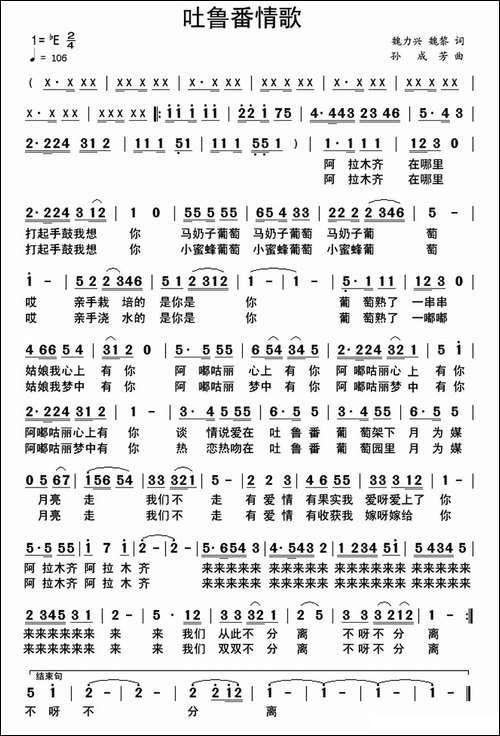 吐鲁番情歌
1=♭E 2/4
♩= 106
魏力兴 魏黎 词
孙 成 芳 曲
( X·X XX | X·X XX | X·X XX | X·X XX | X·X XX | X·X XX |
X·X XX | XXX XX ‖: i i i i i | 22 2 i 75 | 4·443 23 46 | 5·4 3 |
2·224 31 2 | 1 1 1 5 1 | 1 1 1 5 5 1 ) | 1·1 1 1 | 1 2 3 0 |
阿 拉木齐 在哪里
阿 拉木齐 在哪里
2·224 3 12 | 1 0 | 55 5 55 | 65 4 33 | 22 2 2 346 | 5 - |
打起手鼓我想 你 马奶子葡萄 马奶子葡萄 马奶子葡 萄
打起手鼓我想 你 小蜜蜂葡萄 小蜜蜂葡萄 小蜜蜂葡 萄
i - | 5 2 2 346 | 5 2 1 2312 | 1 - | 1 - | 5·1 1 1 | 1 2 3 0 |
哎 亲手栽 培的 是你是 你 葡 萄熟了 一串串
哎 亲手浇 水的 是你是 你 葡 萄熟了 一嘟嘟
4 66 5 4 | 31 2 0 | 5·5 55 | 6 54 34 5 | 2·224 32 1 | 5 i |
姑娘我心上 有你 阿 嘟咕丽 心上 有你 阿嘟咕丽心上 有你
姑娘我梦中 有你 阿 嘟咕丽 梦中 有你 阿嘟咕丽梦中 有你
2·224 31 2 | 1 - | 3·4 55 | 6·5 45 | 3·455 | 2·2 31 |
阿嘟咕丽心上有 你 谈 情说爱在 吐 鲁番 葡 萄架下 月 为媒
阿嘟咕丽梦中有 你 热 恋热吻在 吐 鲁番 葡 萄园里 月 为媒
0 5 67 | i 56 54 | 33 321 | 5 - | 2·2 22 | 3 34 35 | 2 23 21 | 5 - |
月亮 走 我们不 走 有 爱 情 有果实我 爱呀爱上了 你
月亮 走 我们不 走 有 爱 情 有收获我 嫁呀嫁给 你
5·5 55 | i 7 i | 2 - | 2 - | 5·654 3 | 4·543 2 | 1 234 5i |
阿 拉木齐 阿 拉 木 齐 来来来来来 来来来来来 来来来来来来
阿 拉木齐 阿 拉 木 齐 来来来来来 来来来来来 来来来来来来
2345 31 | 2 - | 5·12 | 33 3 32 1 | 2 5 | 3 3 321 2 | 1 - :‖
来来来来来来 来 来 来我们 从此不 分 离 不 呀不 分 离
来来来来来来 来 来 来我们 双双不 分 离 不 呀不 分 离
结束句
5 i | 2 - | 2 - | 2 2 i 2 | i - | i - | i - | i - ‖
不 呀 不 分 离